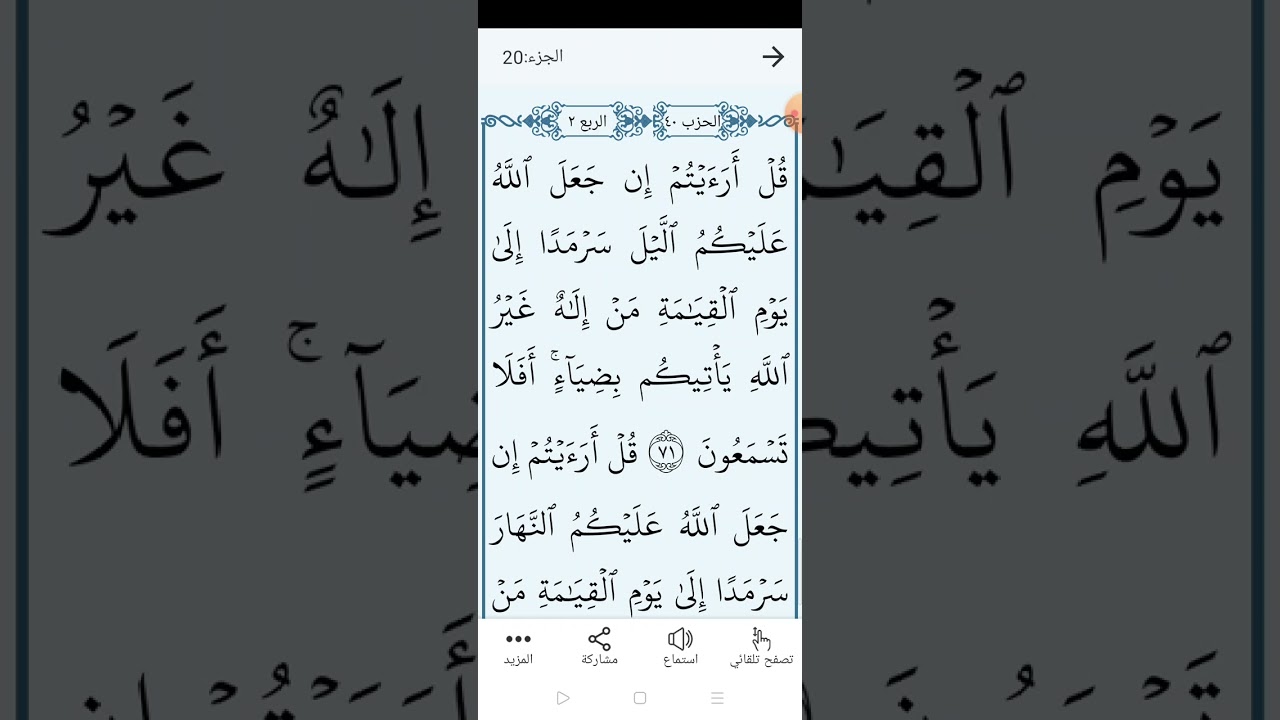 الجزء:20
الحزب ٤٠
الربع ٢
قُلۡ أَرَءَيۡتُمۡ إِن جَعَلَ ٱللَّهُ
عَلَيۡكُمُ ٱلَّيۡلَ سَرۡمَدًا إِلَىٰ
يَوۡمِ ٱلۡقِيَٰمَةِ مَنۡ إِلَٰهٌ غَيۡرُ
ٱللَّهِ يَأۡتِيكُم بِضِيَآءٍۚ أَفَلَا
تَسۡمَعُونَ ٧١ قُلۡ أَرَءَيۡتُمۡ إِن
جَعَلَ ٱللَّهُ عَلَيۡكُمُ ٱلنَّهَارَ
سَرۡمَدًا إِلَىٰ يَوۡمِ ٱلۡقِيَٰمَةِ مَنۡ
تصفح تلقائي
استماع
مشاركة
المزيد